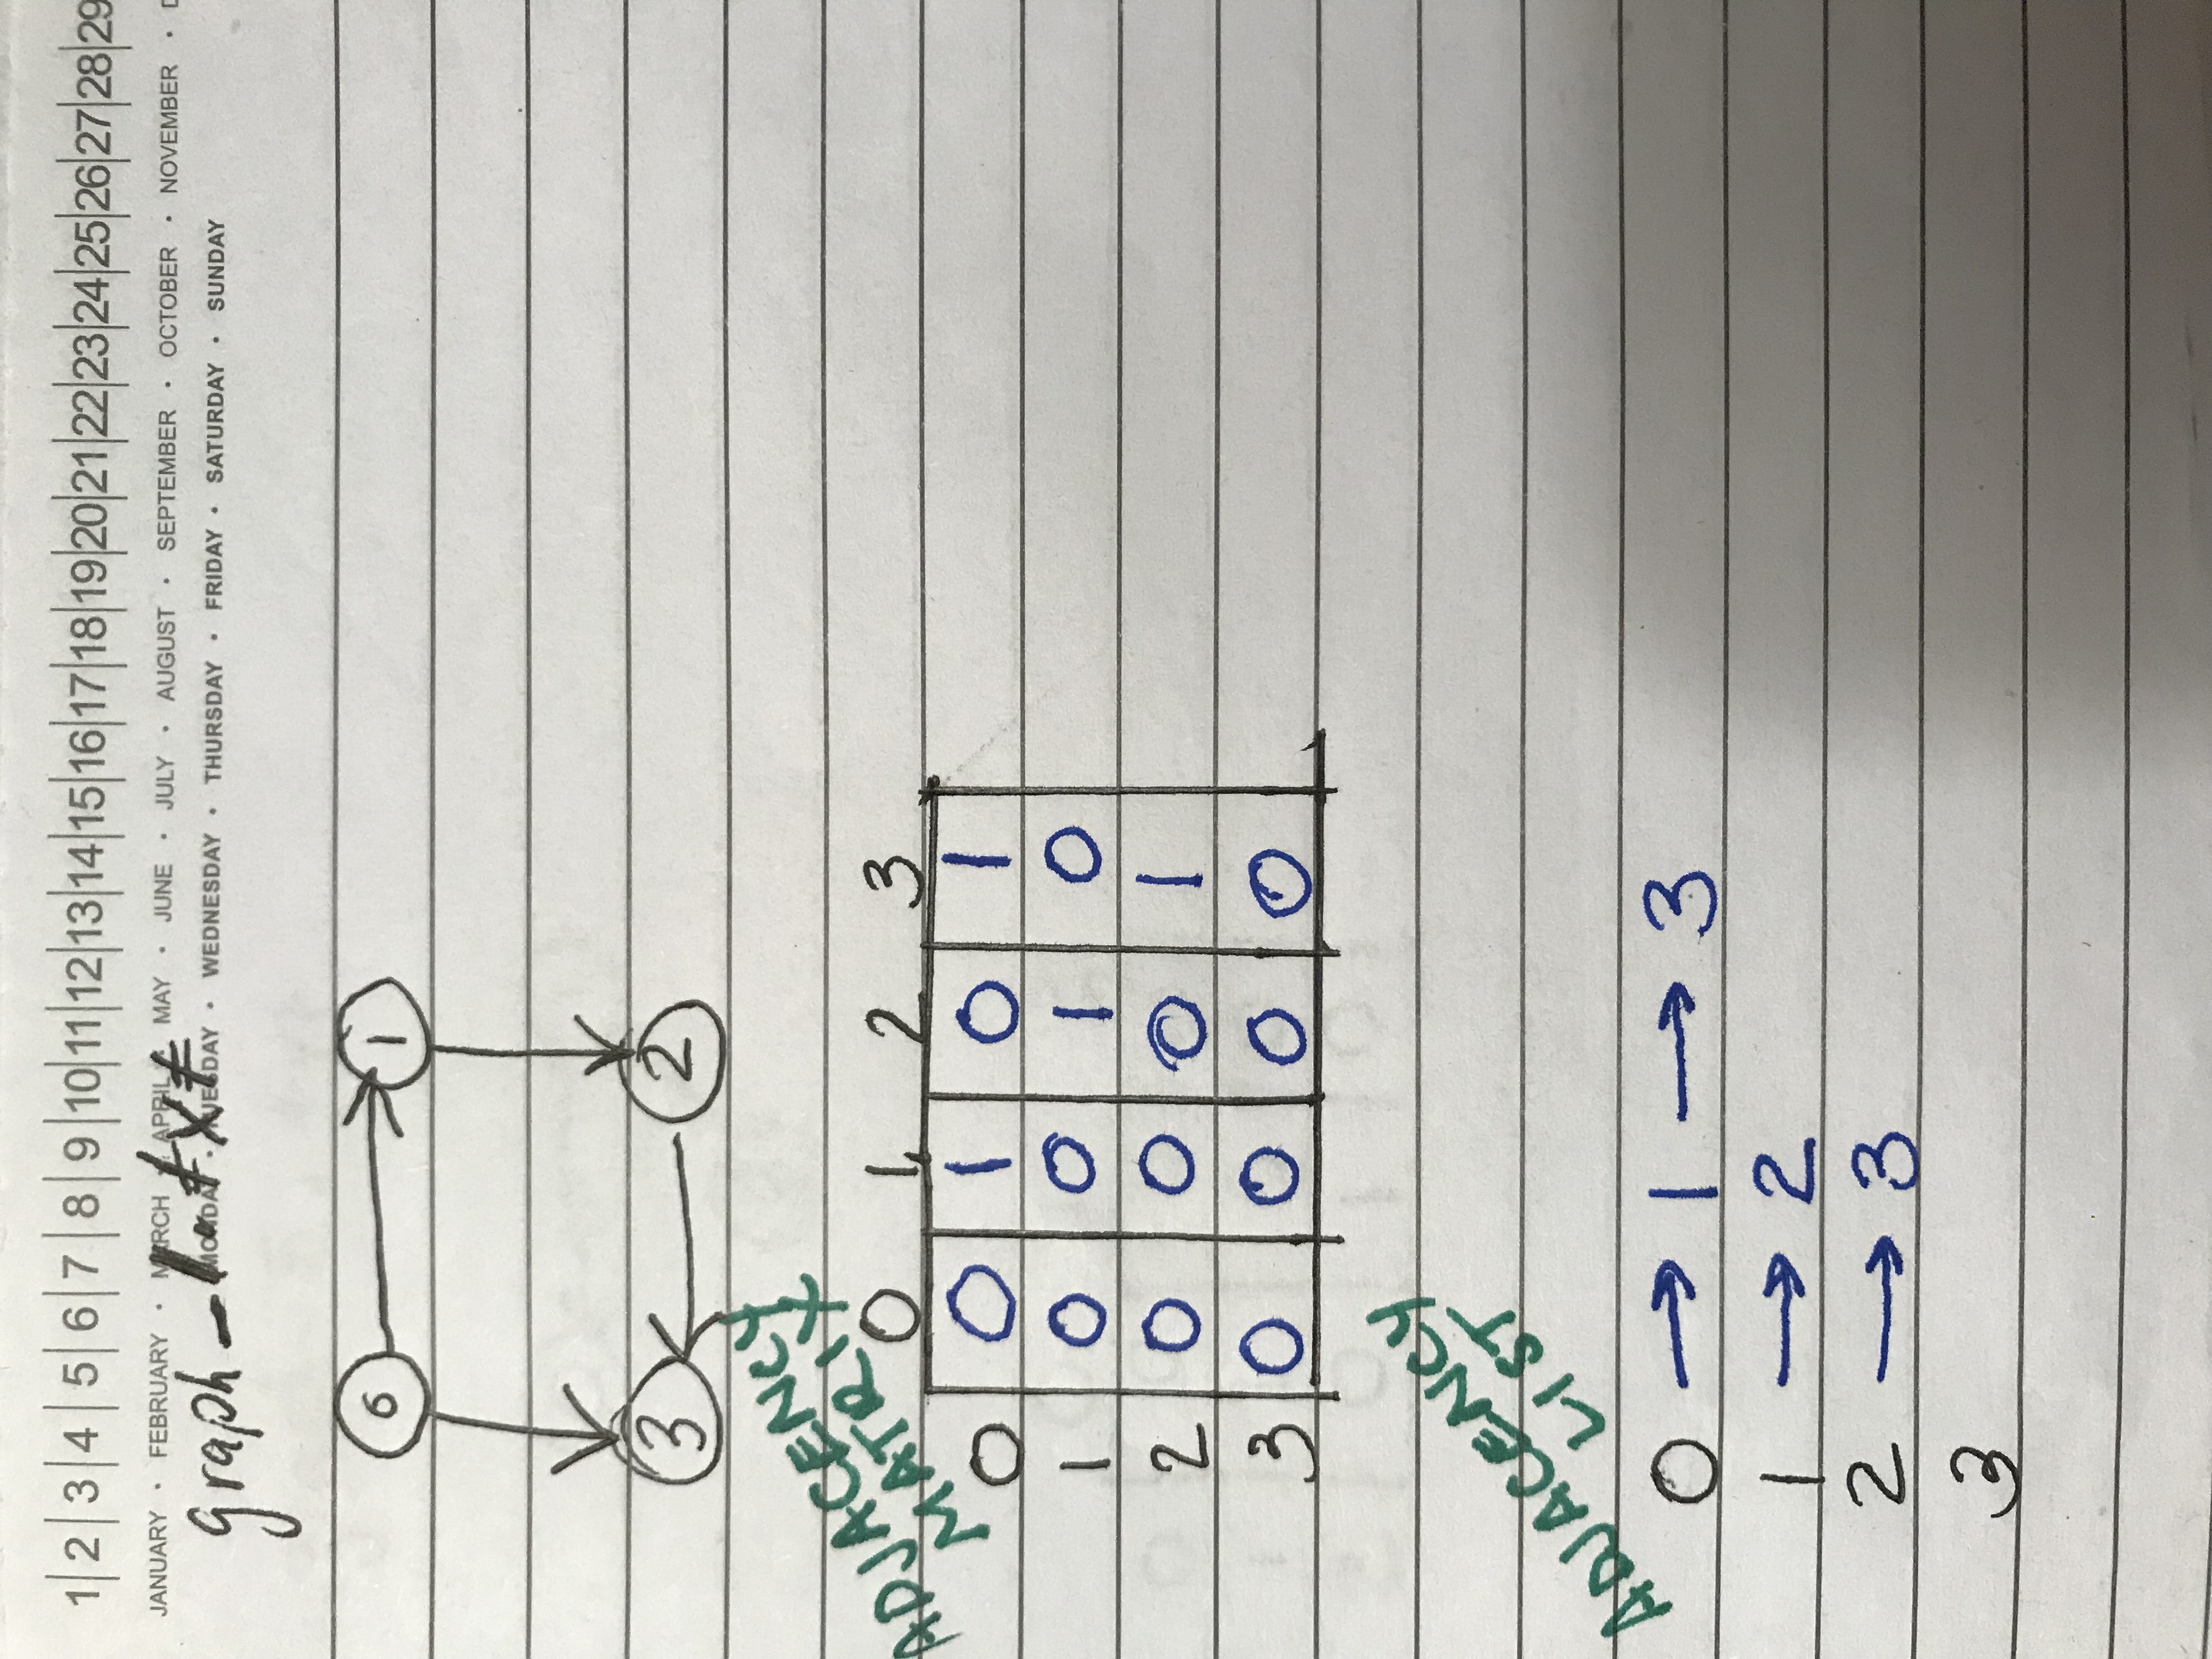 1 2 3 4 5 6 7 8 9 10 11 12 13 14 15 16 17 18 19 20 21 22 23 24 25 26 27 28 29
JANUARY · FEBRUARY · MARCH · APRIL · MAY · JUNE · JULY · AUGUST · SEPTEMBER · OCTOBER · NOVEMBER · D
MONDAY · TUESDAY · WEDNESDAY · THURSDAY · FRIDAY · SATURDAY · SUNDAY
graph_1.txt
0 → 1
3 ← 2
ADJACENCY
MATRIX
0 1 2 3
0 0 1 0 1
1 0 0 1 0
2 0 0 0 1
3 0 0 0 0
ADJACENCY
LIST
0 → 1 → 3
1 → 2
2 → 3
3